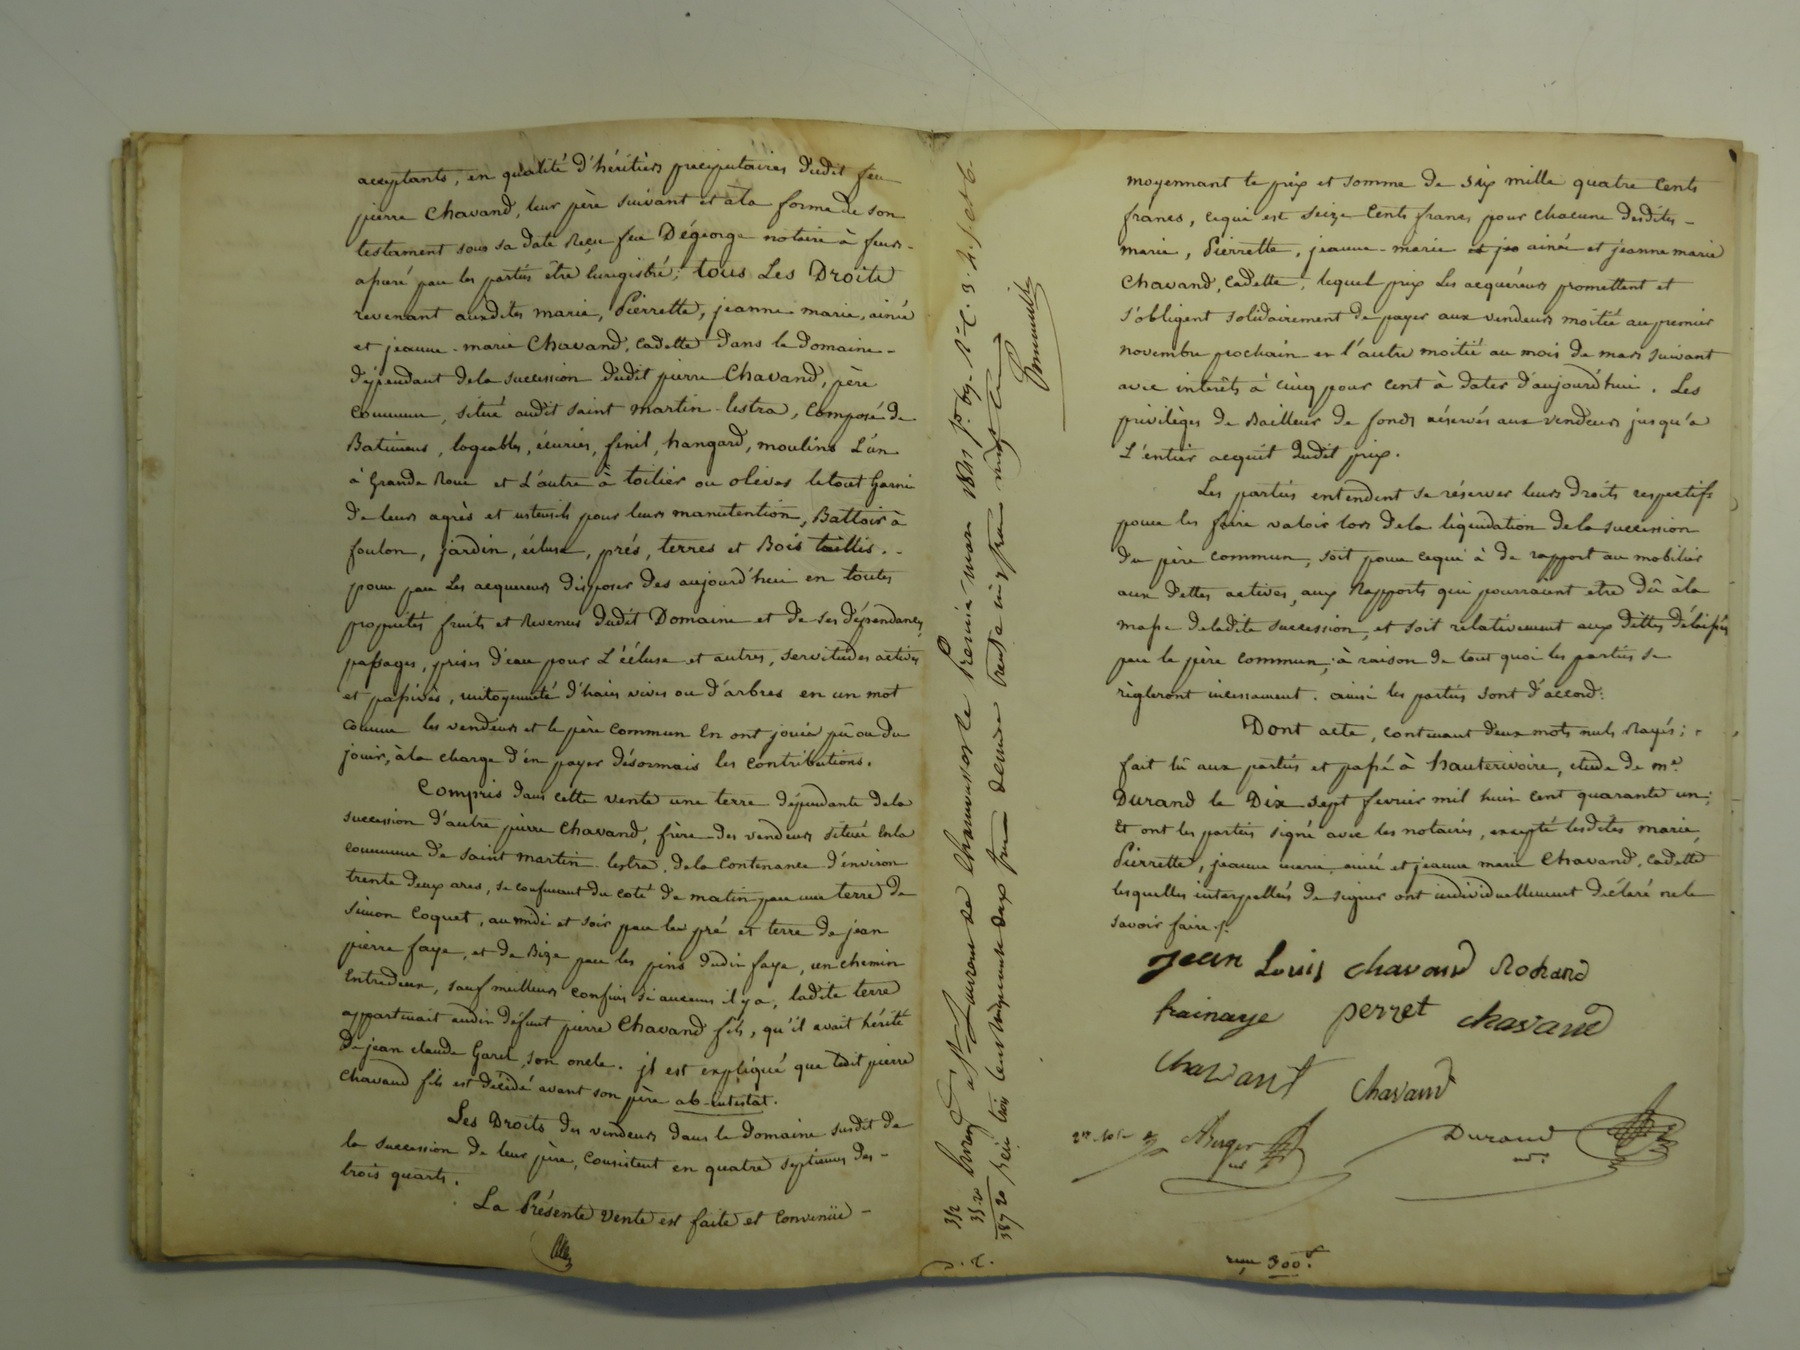 acceptants, en qualité d'héritiers preciputaires dudit feu
pierre Chavand, leur père suivant et àla forme de son
testament sous sa date Reçu feu Dégeorge notaire à feurs -
assuré par les parties être Enregistré; tous Les Droits
revenant auxdites marie, Pierrette, jeanne marie, ainée
et jeanne-marie Chavand, Cadette dans le domaine -
dépendant dela succession dudit pierre Chavand, père
commun, situé audit saint martin-lestra, Composé de
Batimens, logeables, écuries, fenil, hangard, moulins L'un
à Grande Roue et L'autre à toilier ou olives letout Garni
de leurs agrès et ustensils pour leurs manutention, Battoir à
foulon, jardin, écluse, prés, terres et Bois taillis. -
pour par Les acquereurs disposer des aujourd'hui en toutes
propriétés fruits et Revenus dudit Domaine et de ses dépendances,
passages, prises d'eau pour L'écluse et autres, servitudes actives
et passives, mitoyenneté d'haies vives ou d'arbres en un mot
comme les vendeurs et le père commun En ont jouïe pû ou du
jouir, àla charge d'en payer désormais les contributions.
Compris dans cette vente une terre dépendante dela
succession d'autre pierre Chavand, frère des vendeurs située Enla
commune de saint martin lestra, dela Contenance d'environ
trente deux ares, se confinant du coté de matin par une terre de
simon Coquet, au midi et soir par les pré et terre de jean
pierre faye, et de Bize par les pins dudit faye, un chemin
Entredeux, sauf meilleurs confins si aucuns il y a, ladite terre
appartenait audit défunt pierre Chavand fils, qu'il avait hérité
de jean claude Garel, son oncle. jl est expliqué que ledit pierre
Chavand fils est décédé avant son père ab-intestat.
Les Droits des vendeurs dans le domaine susdit de
la succession de leur père, Consistent en quatre septiemes des -
trois quarts.
La Présente vente est faite et convenüe -
Enregé à St Laurent de Chamousset le Premier mars 1841 fo 69. Ro C. 3. 4. 5. et 6.
352
35 20
387 20
moyennant le prix et somme de six mille quatre Cents
francs, cequi est seize Cents francs pour chacune desdites -
marie, Pierrette, jeanne-marie et jea ainée et jeanne marie
Chavand, Cadette, lequel prix Les acquéreurs promettent et
s'obligent solidairement de payer aux vendeurs moitié au premier
novembre prochain et l'autre moitié au mois de mars suivant
avec interêts à cinq pour cent à dater d'aujourd'hui. Les
privilèges de Bailleur de fonds réservés aux vendeurs jusqu'a
L'entier acquit dudit prix.
Les parties entendent se réserver leurs droits respectifs
pour les faire valoir lors dela liquidation dela succession
du père commun, soit pour cequi à de rapport au mobilier
aux dettes actives, aux Rapports qui pourraient etre dû àla
masse deladite succession, et soit relativement aux dettes délaissées
par le père commun, à raison de tout quoi les parties se
règleront incessament. ainsi les parties sont d'accord:
Dont acte, contenant deux mots nuls Rayés;
fait lû aux parties et passé à hauterivoire, etude de me
Durand le Dix sept fevrier mil huit cent quarante un;
Et ont les parties signé avec les notaires, excepté lesdites marie,
Pierrette, jeanne marie, ainée et jeanne marie Chavand, cadette
lesquelles interpellées de signer ont individuellement déclaré nele
savoir faire ./.
jean Louis Chavand
perret Chavand
Chavant Chavand
Berger Durand
nre
reçu 300 f.